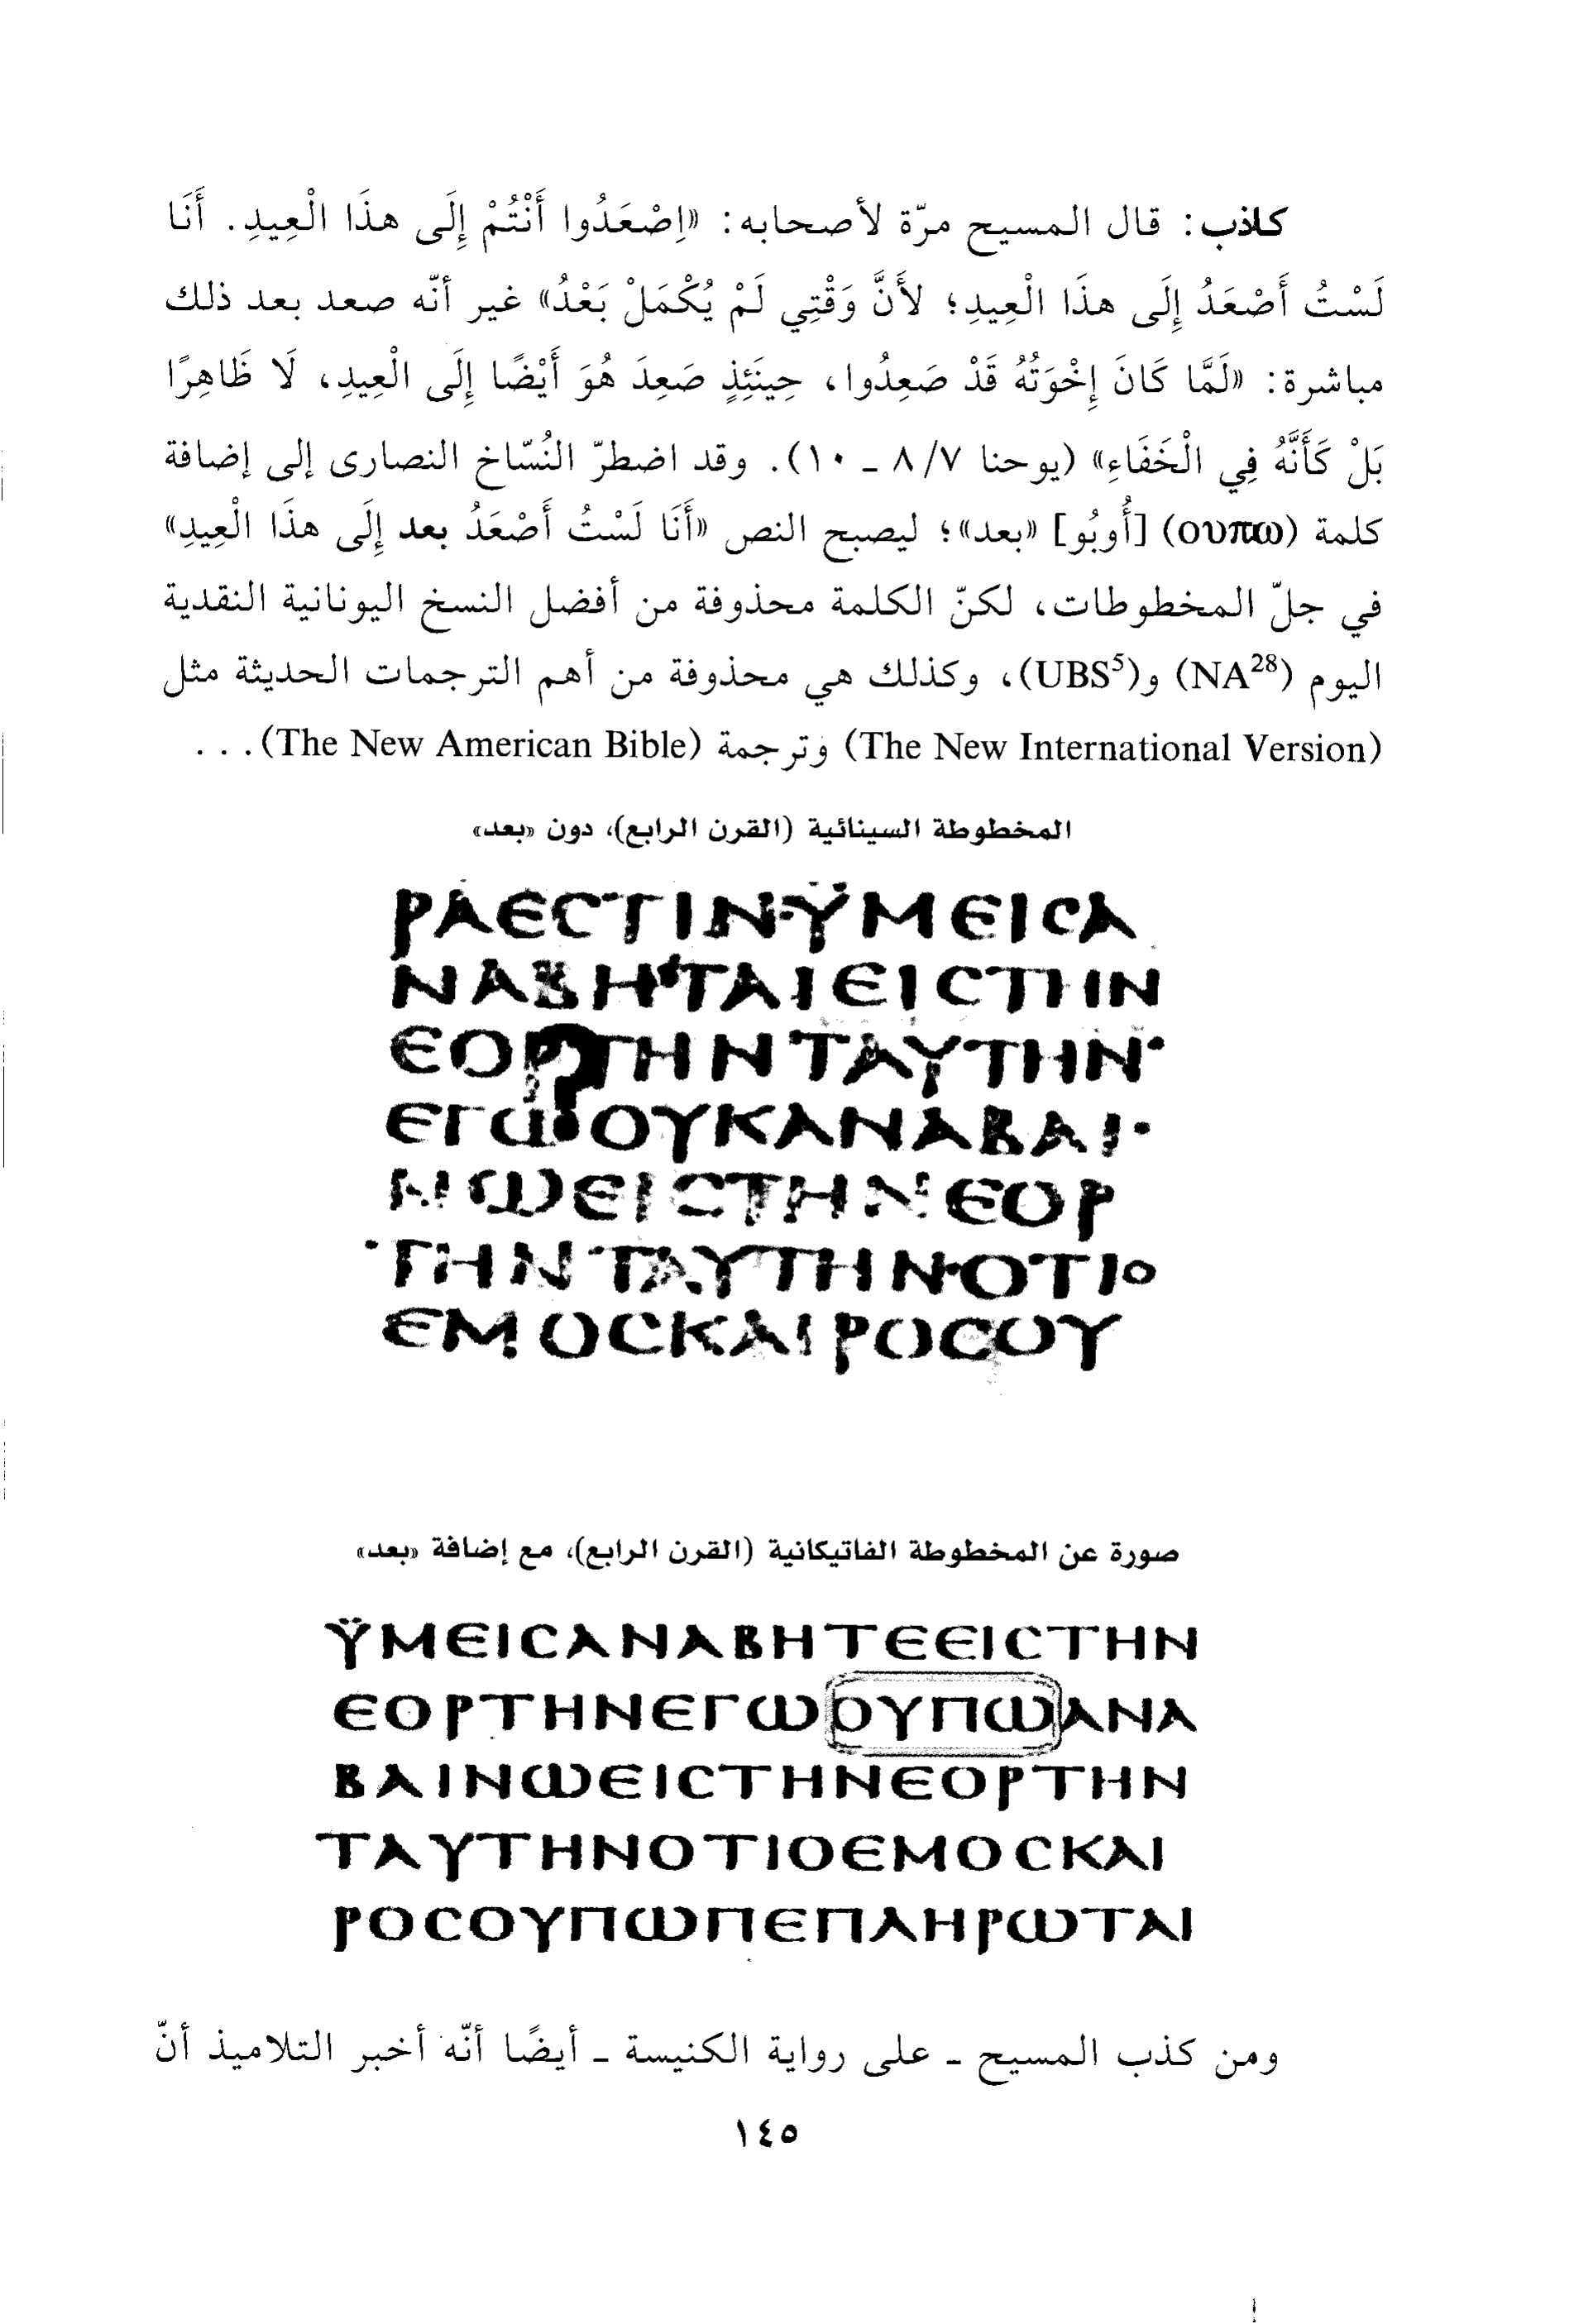 كاذب: قال المسيح مرّة لأصحابه: «اِصْعَدُوا أَنْتُمْ إِلَى هذَا الْعِيدِ. أَنَا
لَسْتُ أَصْعَدُ إِلَى هذَا الْعِيدِ؛ لأَنَّ وَقْتِي لَمْ يُكْمَلْ بَعْدُ» غير أنّه صعد بعد ذلك
مباشرة: «لَمَّا كَانَ إِخْوَتُهُ قَدْ صَعِدُوا، حِينَئِذٍ صَعِدَ هُوَ أَيْضًا إِلَى الْعِيدِ، لَا ظَاهِرًا
بَلْ كَأَنَّهُ فِي الْخَفَاءِ» (يوحنا ٧/ ٨ ـ ١٠). وقد اضطرّ النُسّاخ النصارى إلى إضافة
كلمة (ουπω) [أُوبُو] «بعد»؛ ليصبح النص «أَنَا لَسْتُ أَصْعَدُ بعد إِلَى هذَا الْعِيدِ»
في جلّ المخطوطات، لكنّ الكلمة محذوفة من أفضل النسخ اليونانية النقدية
اليوم (NA²⁸) و(UBS⁵)، وكذلك هي محذوفة من أهم الترجمات الحديثة مثل
(The New International Version) وترجمة (The New American Bible) . . .
المخطوطة السينائية (القرن الرابع)، دون «بعد»
ΡΑΕϹΤΙΝ·ΫΜΕΙϹΑ
ΝΑΒΗΤΑΙΕΙϹΤΗΝ
ΕΟΡΤΗΝΤΑΥΤΗΝ·
ΕΓΩΟΥΚΑΝΑΒΑΙ·
ΝΩΕΙϹΤΗΝΕΟΡ
ΤΗΝΤΑΥΤΗΝ·ΟΤΙΟ
ΕΜΟϹΚΑΙΡΟϹΟΥ
صورة عن المخطوطة الفاتيكانية (القرن الرابع)، مع إضافة «بعد»
ΫΜΕΙϹΑΝΑΒΗΤΕΕΙϹΤΗΝ
ΕΟΡΤΗΝΕΓΩΟΥΠΩΑΝΑ
ΒΑΙΝΩΕΙϹΤΗΝΕΟΡΤΗΝ
ΤΑΥΤΗΝΟΤΙΟΕΜΟϹΚΑΙ
ΡΟϹΟΥΠΩΠΕΠΛΗΡΩΤΑΙ
ومن كذب المسيح ـ على رواية الكنيسة ـ أيضًا أنّه أخبر التلاميذ أنّ
١٤٥